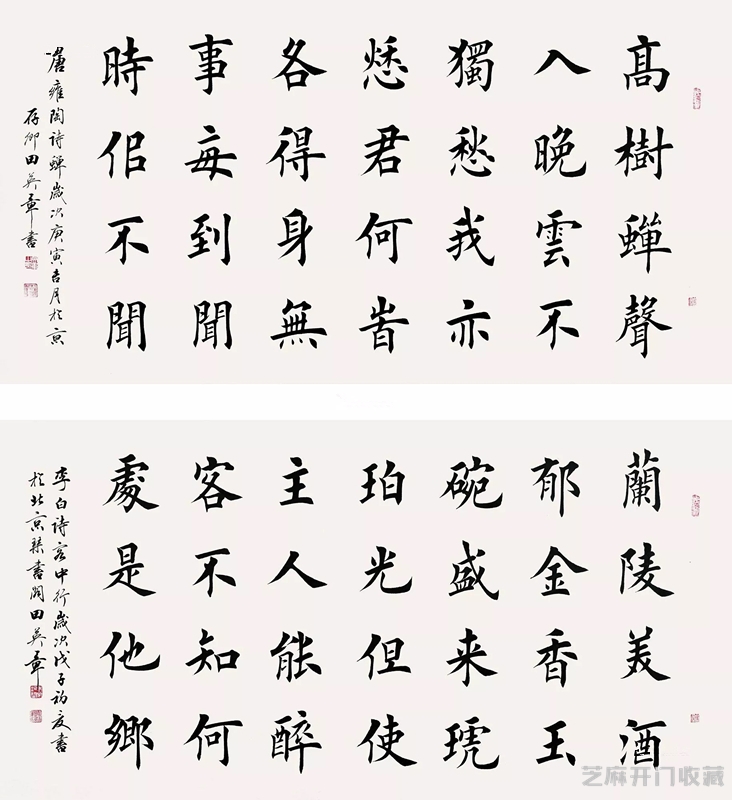 髙樹蟬聲
入晚雲不
獨愁我亦
愁君何旹
各得身無
事每到聞
時佀不聞
唐雍陶詩蟬歲次庚寅吉月於京
存卿田英章書
蘭陵美酒
郁金香玉
碗盛来琥
珀光但使
主人能醉
客不知何
處是他鄉
李白詩客中行歲次戊子初夏書
於北京琹書閣田英章
芝麻开门收藏